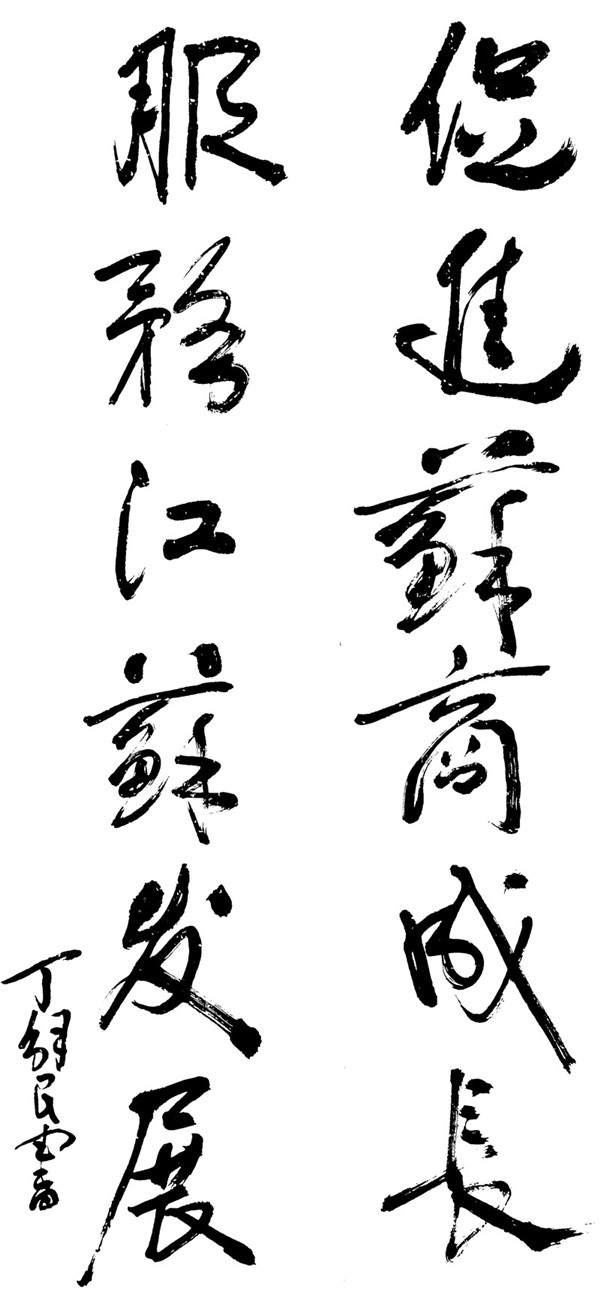 促進蘇商成長
服務江蘇发展
丁解民書